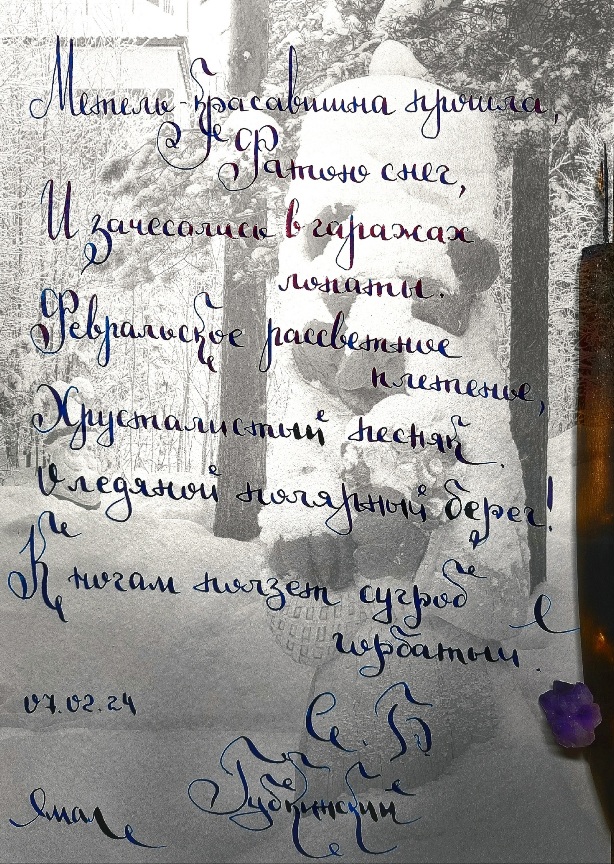 Метель-красавишна прошла,
Фатою снег,
И зачесались в гаражах
лопаты.
Февральское рассветное
плетенье,
Хрусталистый песняк
И ледяной полярный берег!
К ногам ползет сугроб
горбатый.
07.02.24
С. Б
Губкинский
Ямал